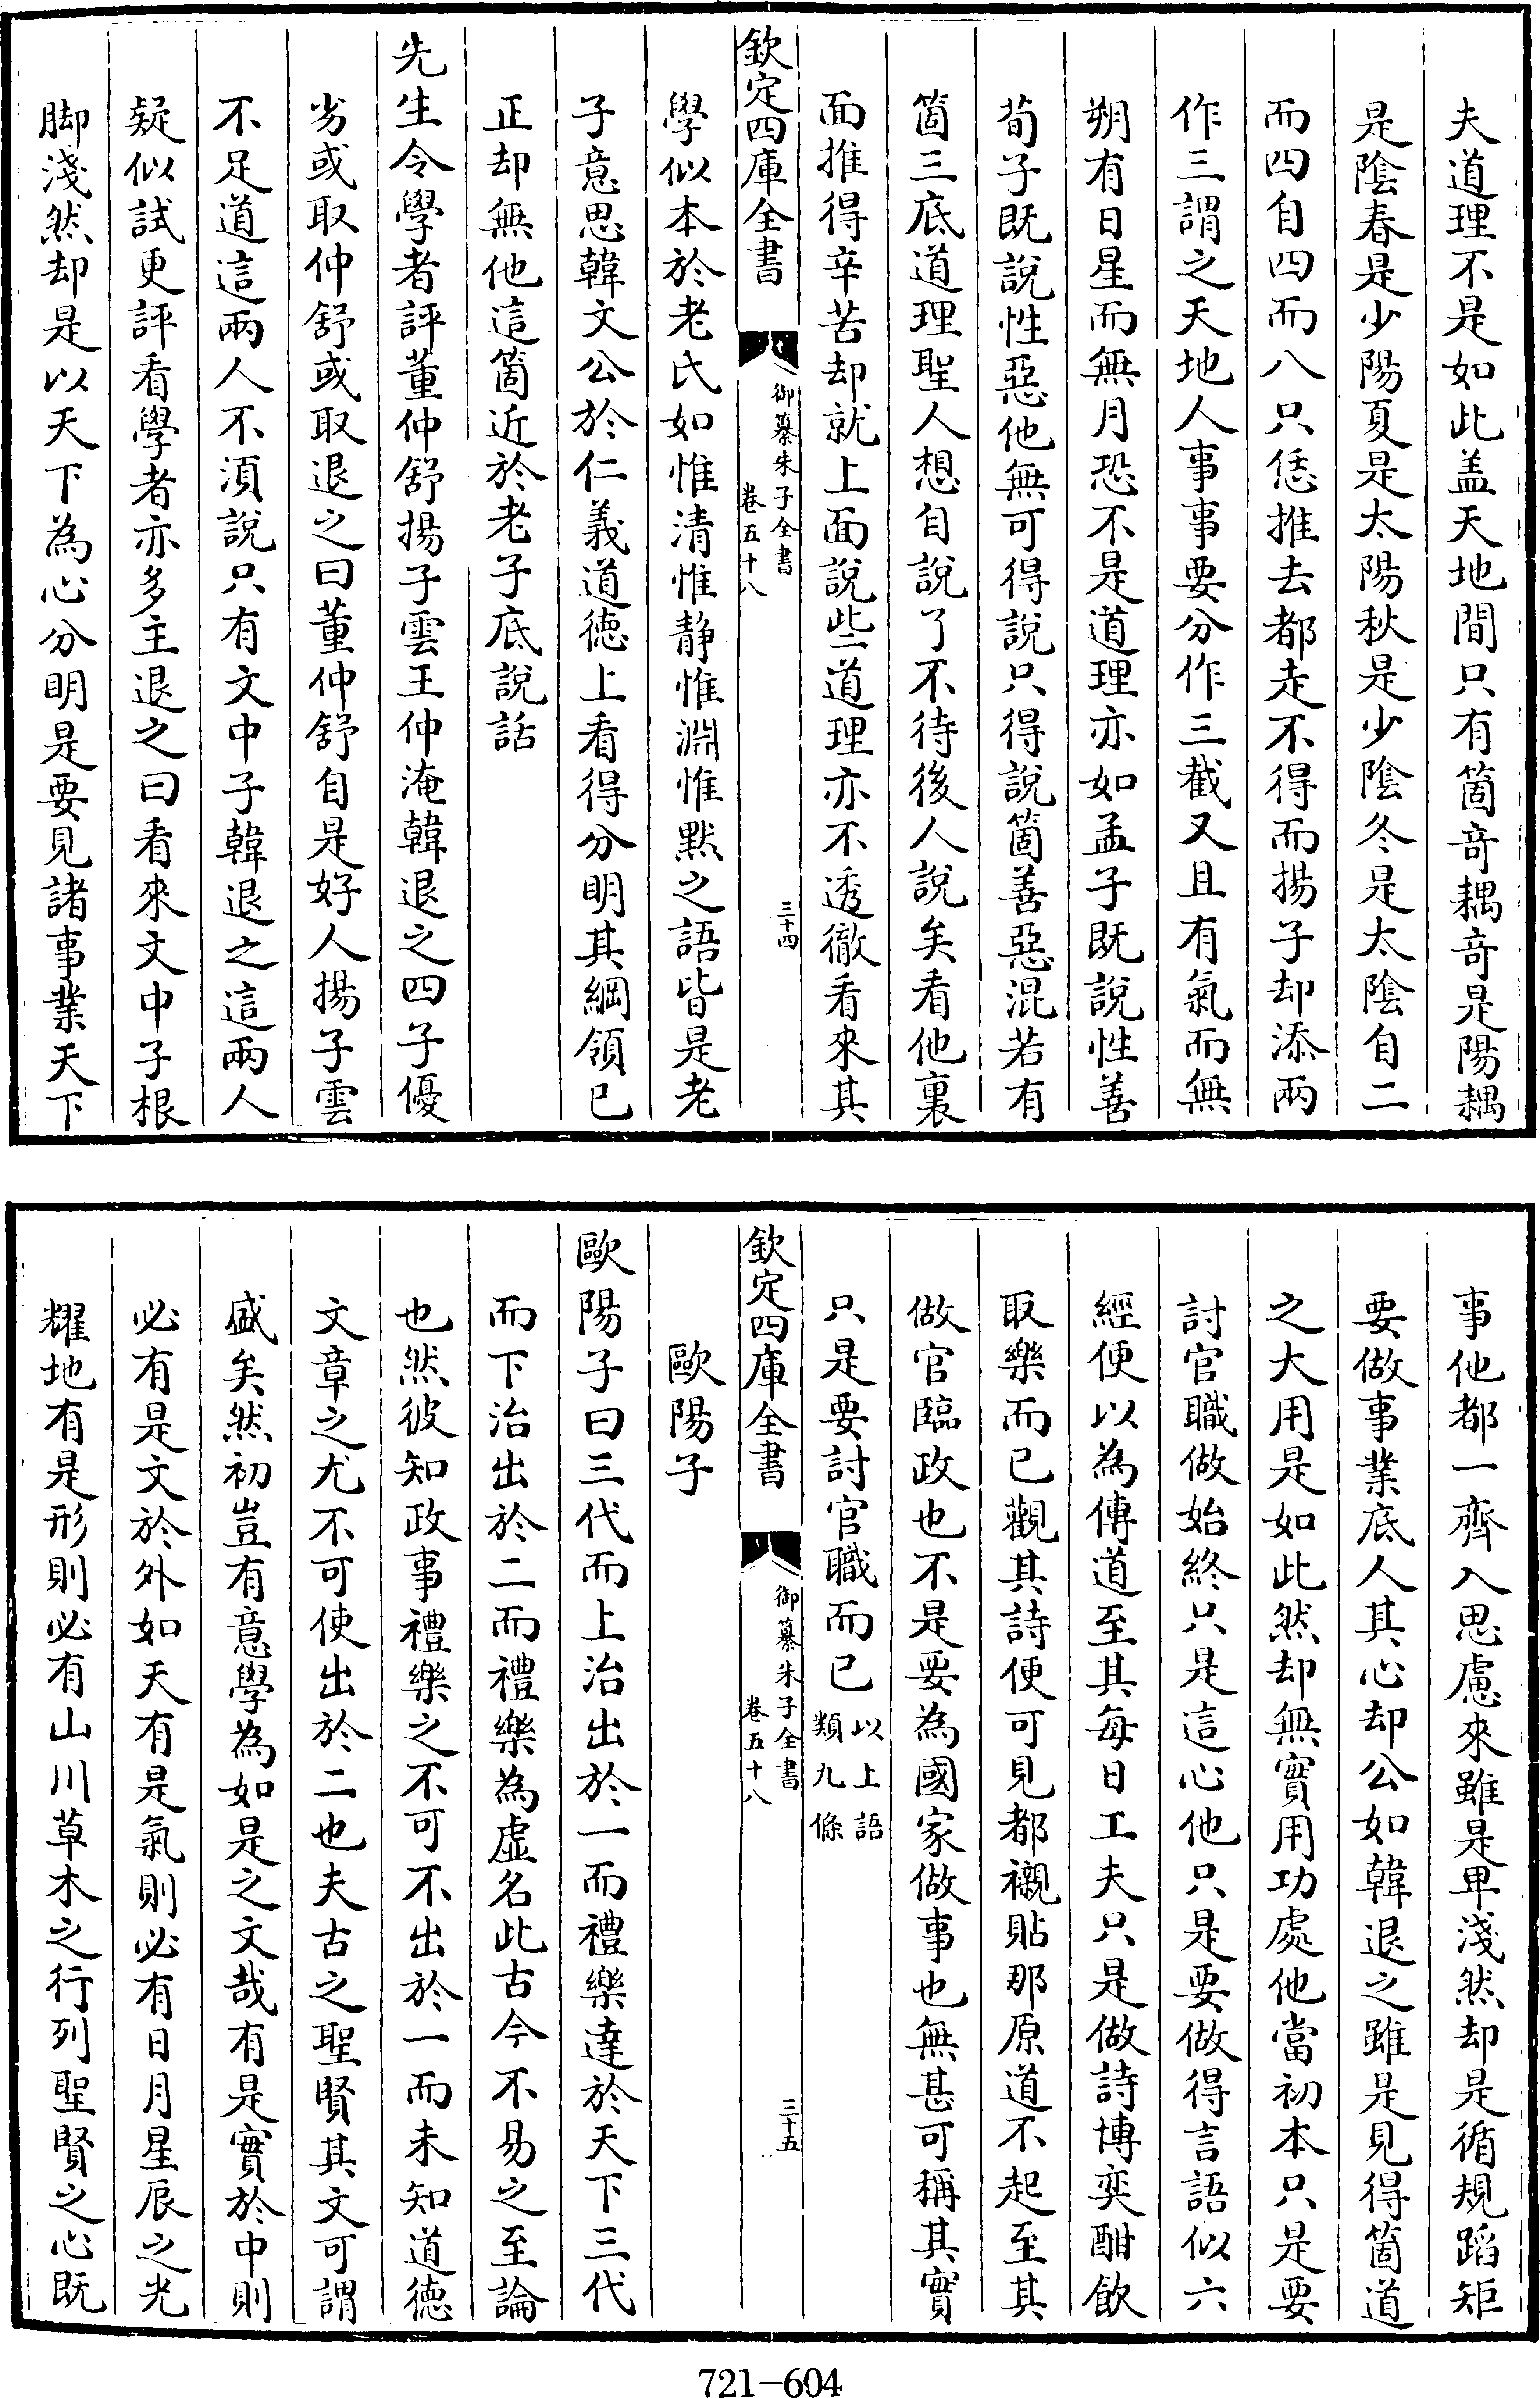 夫道理不是如此盖天地間只有箇竒耦竒是陽耦
是陰春是少陽夏是太陽秋是少陰冬是太陰自二
而四自四而八只恁推去都走不得而揚子却添兩
作三謂之天地人事事要分作三截又且有氣而無
朔有日星而無月恐不是道理亦如孟子既說性善
荀子既説性惡他無可得説只得説箇善惡混若有
箇三底道理聖人想自說了不待後人說矣看他裏
面推得辛苦却就上面說些道理亦不透徹看來其
欽定四庫全書
御纂朱子全書
卷五十八
三十四
學似本於老氏如惟清惟静惟淵惟默之語皆是老
子意思韓文公於仁義道徳上看得分明其綱領已
正却無他這箇近於老子底說話
先生令學者評董仲舒揚子雲王仲淹韓退之四子優
劣或取仲舒或取退之曰董仲舒自是好人揚子雲
不足道這兩人不須說只有文中子韓退之這兩人
疑似試更評看學者亦多主退之曰看來文中子根
脚淺然却是以天下為心分明是要見諸事業天下
事他都一齊入思慮來雖是卑淺然却是循規蹈矩
要做事業底人其心却公如韓退之雖是見得箇道
之大用是如此然却無實用功處他當初本只是要
討官職做始終只是這心他只是要做得言語似六
經便以為傳道至其每日工夫只是做詩博奕酣飲
取樂而已觀其詩便可見都襯貼那原道不起至其
做官臨政也不是要為國家做事也無甚可稱其實
只是要討官職而已以上語類九條
欽定四庫全書
御纂朱子全書
卷五十八
三十五
歐陽子
歐陽子曰三代而上治出於一而禮樂達於天下三代
而下治出於二而禮樂為虛名此古今不易之至論
也然彼知政事禮樂之不可不出於一而未知道徳
文章之尤不可使出於二也夫古之聖賢其文可謂
盛矣然初豈有意學為如是之文哉有是實於中則
必有是文於外如天有是氣則必有日月星辰之光
耀地有是形則必有山川草木之行列聖賢之心既
721-604